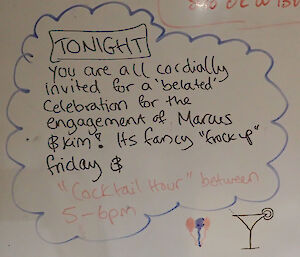 TONIGHT
You are all cordially
invited for a 'belated'
Celebration for the
engagement of Marcus
& Kim! Its fancy "frock up"
friday &
"Cocktail Hour" between
5-6pm